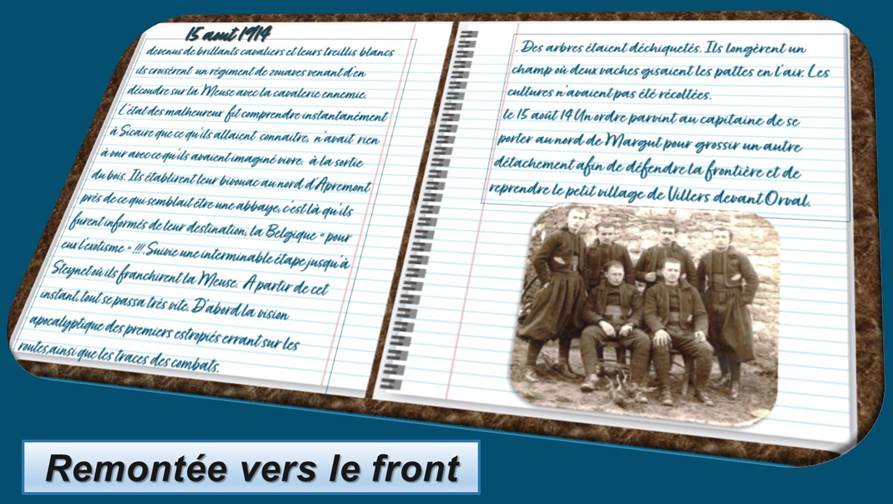 15 aout 1914
devenus de brillants cavaliers et leurs treillis blancs
ils croisèrent un régiment de zouaves venant d'en
découdre sur la Meuse avec la cavalerie ennemie.
L'état des malheureux fit comprendre instantanément
à Sicaire que ce qu'ils allaient connaitre, n'avait rien
à voir avec ce qu'ils avaient imaginé vivre, à la sortie
du bois. Ils établirent leur bivouac au nord d'Apremont
près de ce qui semblait être une abbaye, c'est là qu'ils
furent informés de leur destination, la Belgique " pour
eux l'exotisme " !!! Suivie une interminable étape jusqu'à
Steynet où ils franchirent la Meuse. A partir de cet
instant, tout se passa très vite. D'abord la vision
apocalyptique des premiers estropiés errant sur les
routes, ainsi que les traces des combats.
. Des arbres étaient déchiquetés. Ils longèrent un
champ où deux vaches gisaient les pattes en l'air. Les
cultures n'avaient pas été récoltées.
le 15 août 14 Un ordre parvint au capitaine de se
porter au nord de Margut pour grossir un autre
détachement afin de défendre la frontière et de
reprendre le petit village de Villers devant Orval.
Remontée vers le front